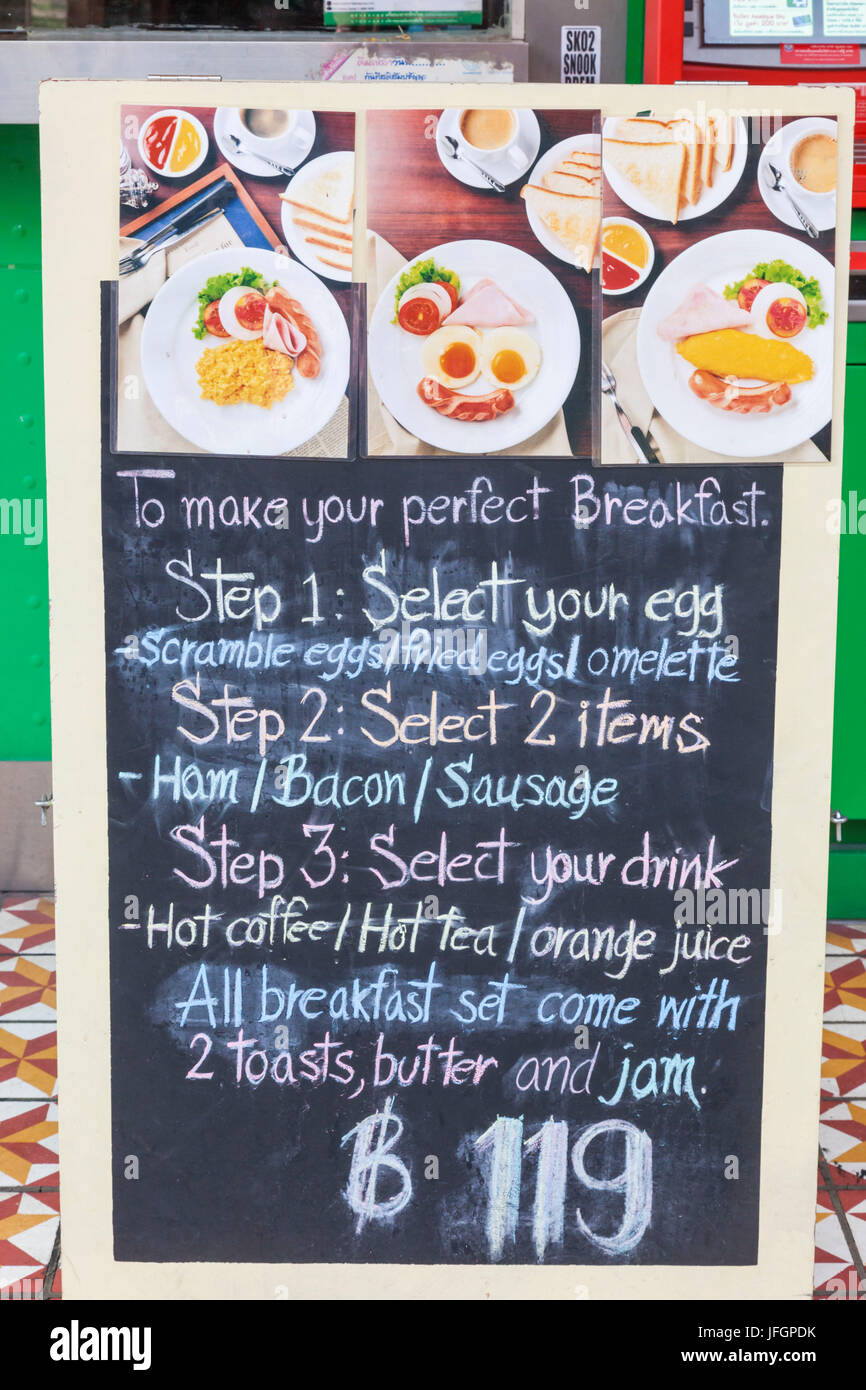 SKO2
SNOOK
To make your perfect Breakfast.
Step 1: Select your egg
-Scramble eggs/fried eggs/omelette
Step 2: Select 2 items
-Ham/Bacon/Sausage
Step 3: Select your drink
-Hot coffee/Hot tea/orange juice
All breakfast set come with
2 toasts, butter and jam.
฿ 119
alamy
Image ID: JFGPDK
www.alamy.com